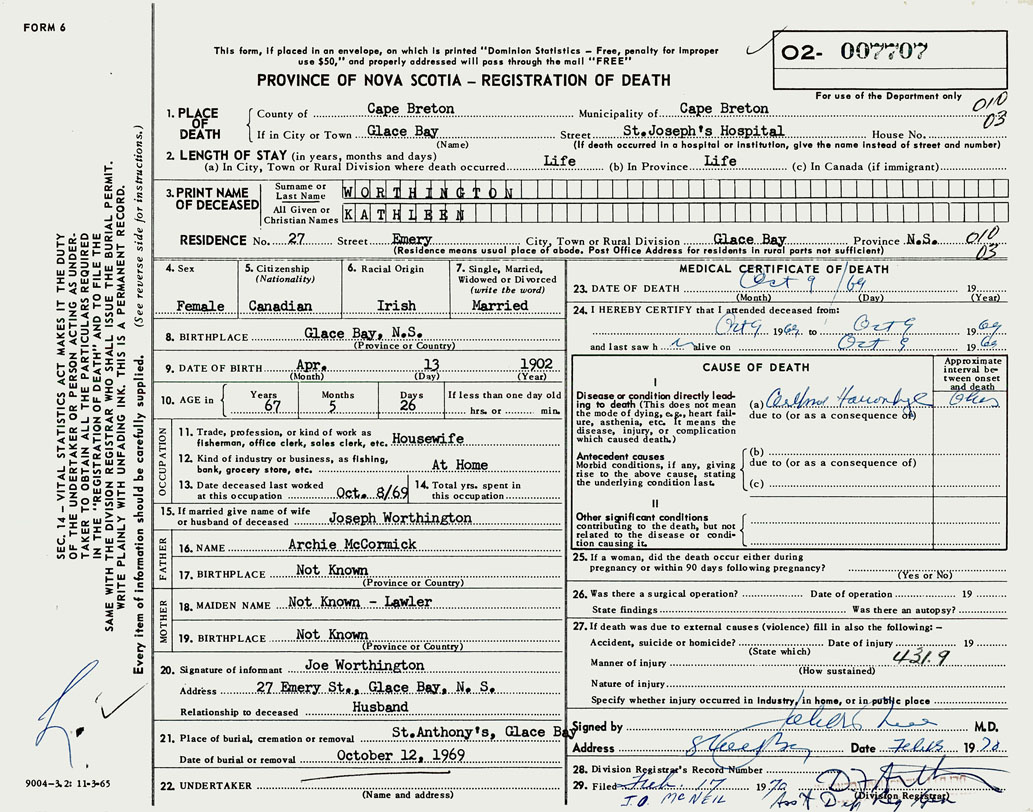 FORM 6
This form, if placed in an envelope, on which is printed "Dominion Statistics – Free, penalty for improper
use $50," and properly addressed will pass through the mail "FREE"
PROVINCE OF NOVA SCOTIA – REGISTRATION OF DEATH
O2- 007707
For use of the Department only
010
03
1. PLACE OF DEATH
County of Cape Breton Municipality of Cape Breton
If in City or Town Glace Bay Street St.Joseph's Hospital House No.
(Name) (If death occurred in a hospital or institution, give the name instead of street and number)
2. LENGTH OF STAY (in years, months and days)
(a) In City, Town or Rural Division where death occurred Life (b) In Province Life (c) In Canada (if immigrant)
3. PRINT NAME OF DECEASED
Surname or Last Name WORTHINGTON
All Given or Christian Names KATHLEEN
RESIDENCE No. 27 Street Emery City, Town or Rural Division Glace Bay Province N.S.
(Residence means usual place of abode. Post Office Address for residents in rural parts not sufficient)
010
03
4. Sex
Female
5. Citizenship
(Nationality)
Canadian
6. Racial Origin
Irish
7. Single, Married,
Widowed or Divorced
(write the word)
Married
8. BIRTHPLACE Glace Bay, N.S.
(Province or Country)
9. DATE OF BIRTH Apr. 13 1902
(Month) (Day) (Year)
10. AGE in
Years Months Days If less than one day old
67 5 26 hrs. or min.
OCCUPATION
11. Trade, profession, or kind of work as
fisherman, office clerk, sales clerk, etc. Housewife
12. Kind of industry or business, as fishing,
bank, grocery store, etc. At Home
13. Date deceased last worked
at this occupation Oct. 8/69
14. Total yrs. spent in
this occupation
15. If married give name of wife
or husband of deceased Joseph Worthington
FATHER
16. NAME Archie McCormick
17. BIRTHPLACE Not Known
(Province or Country)
MOTHER
18. MAIDEN NAME Not Known - Lawler
19. BIRTHPLACE Not Known
(Province or Country)
20. Signature of informant Joe Worthington
Address 27 Emery St., Glace Bay, N. S.
Relationship to deceased Husband
21. Place of burial, cremation or removal St.Anthony's, Glace Bay
Date of burial or removal October 12, 1969
22. UNDERTAKER
(Name and address)
MEDICAL CERTIFICATE OF DEATH
23. DATE OF DEATH Oct 9 /69 19
(Month) (Day) (Year)
24. I HEREBY CERTIFY that I attended deceased from:
Oct 9 1969 to Oct 9 1969
and last saw h alive on Oct 9 1969
CAUSE OF DEATH
Approximate
interval be-
tween onset
and death
I
Disease or condition directly lead-
ing to death (This does not mean
the mode of dying, e.g., heart fail-
ure, asthenia, etc. It means the
disease, injury, or complication
which caused death.)
(a)
due to (or as a consequence of)
Antecedent causes
Morbid conditions, if any, giving
rise to the above cause, stating
the underlying condition last.
(b)
due to (or as a consequence of)
(c)
II
Other significant conditions
contributing to the death, but not
related to the disease or condi-
tion causing it.
25. If a woman, did the death occur either during
pregnancy or within 90 days following pregnancy?
(Yes or No)
26. Was there a surgical operation? Date of operation 19
State findings Was there an autopsy?
27. If death was due to external causes (violence) fill in also the following: –
Accident, suicide or homicide? Date of injury 19
(State which)
431.9
Manner of injury
(How sustained)
Nature of injury
Specify whether injury occurred in industry, in home, or in public place
Signed by M.D.
Address Glace Bay Date Feb 13 1970
28. Division Registrar's Record Number
29. Filed Feb. 17 1970
J.O. MCNEIL
(Division Registrar)
SEC. 14 – VITAL STATISTICS ACT MAKES IT THE DUTY
OF THE UNDERTAKER OR PERSON ACTING AS UNDER-
TAKER TO OBTAIN ALL THE PARTICULARS REQUIRED
IN THE "REGISTRATION OF DEATH" AND TO FILE THE
SAME WITH THE DIVISION REGISTRAR WHO SHALL ISSUE THE BURIAL PERMIT.
WRITE PLAINLY WITH UNFADING INK. THIS IS A PERMANENT RECORD.
Every item of information should be carefully supplied. (See reverse side for instructions.)
9004-3.2: 11-3-65